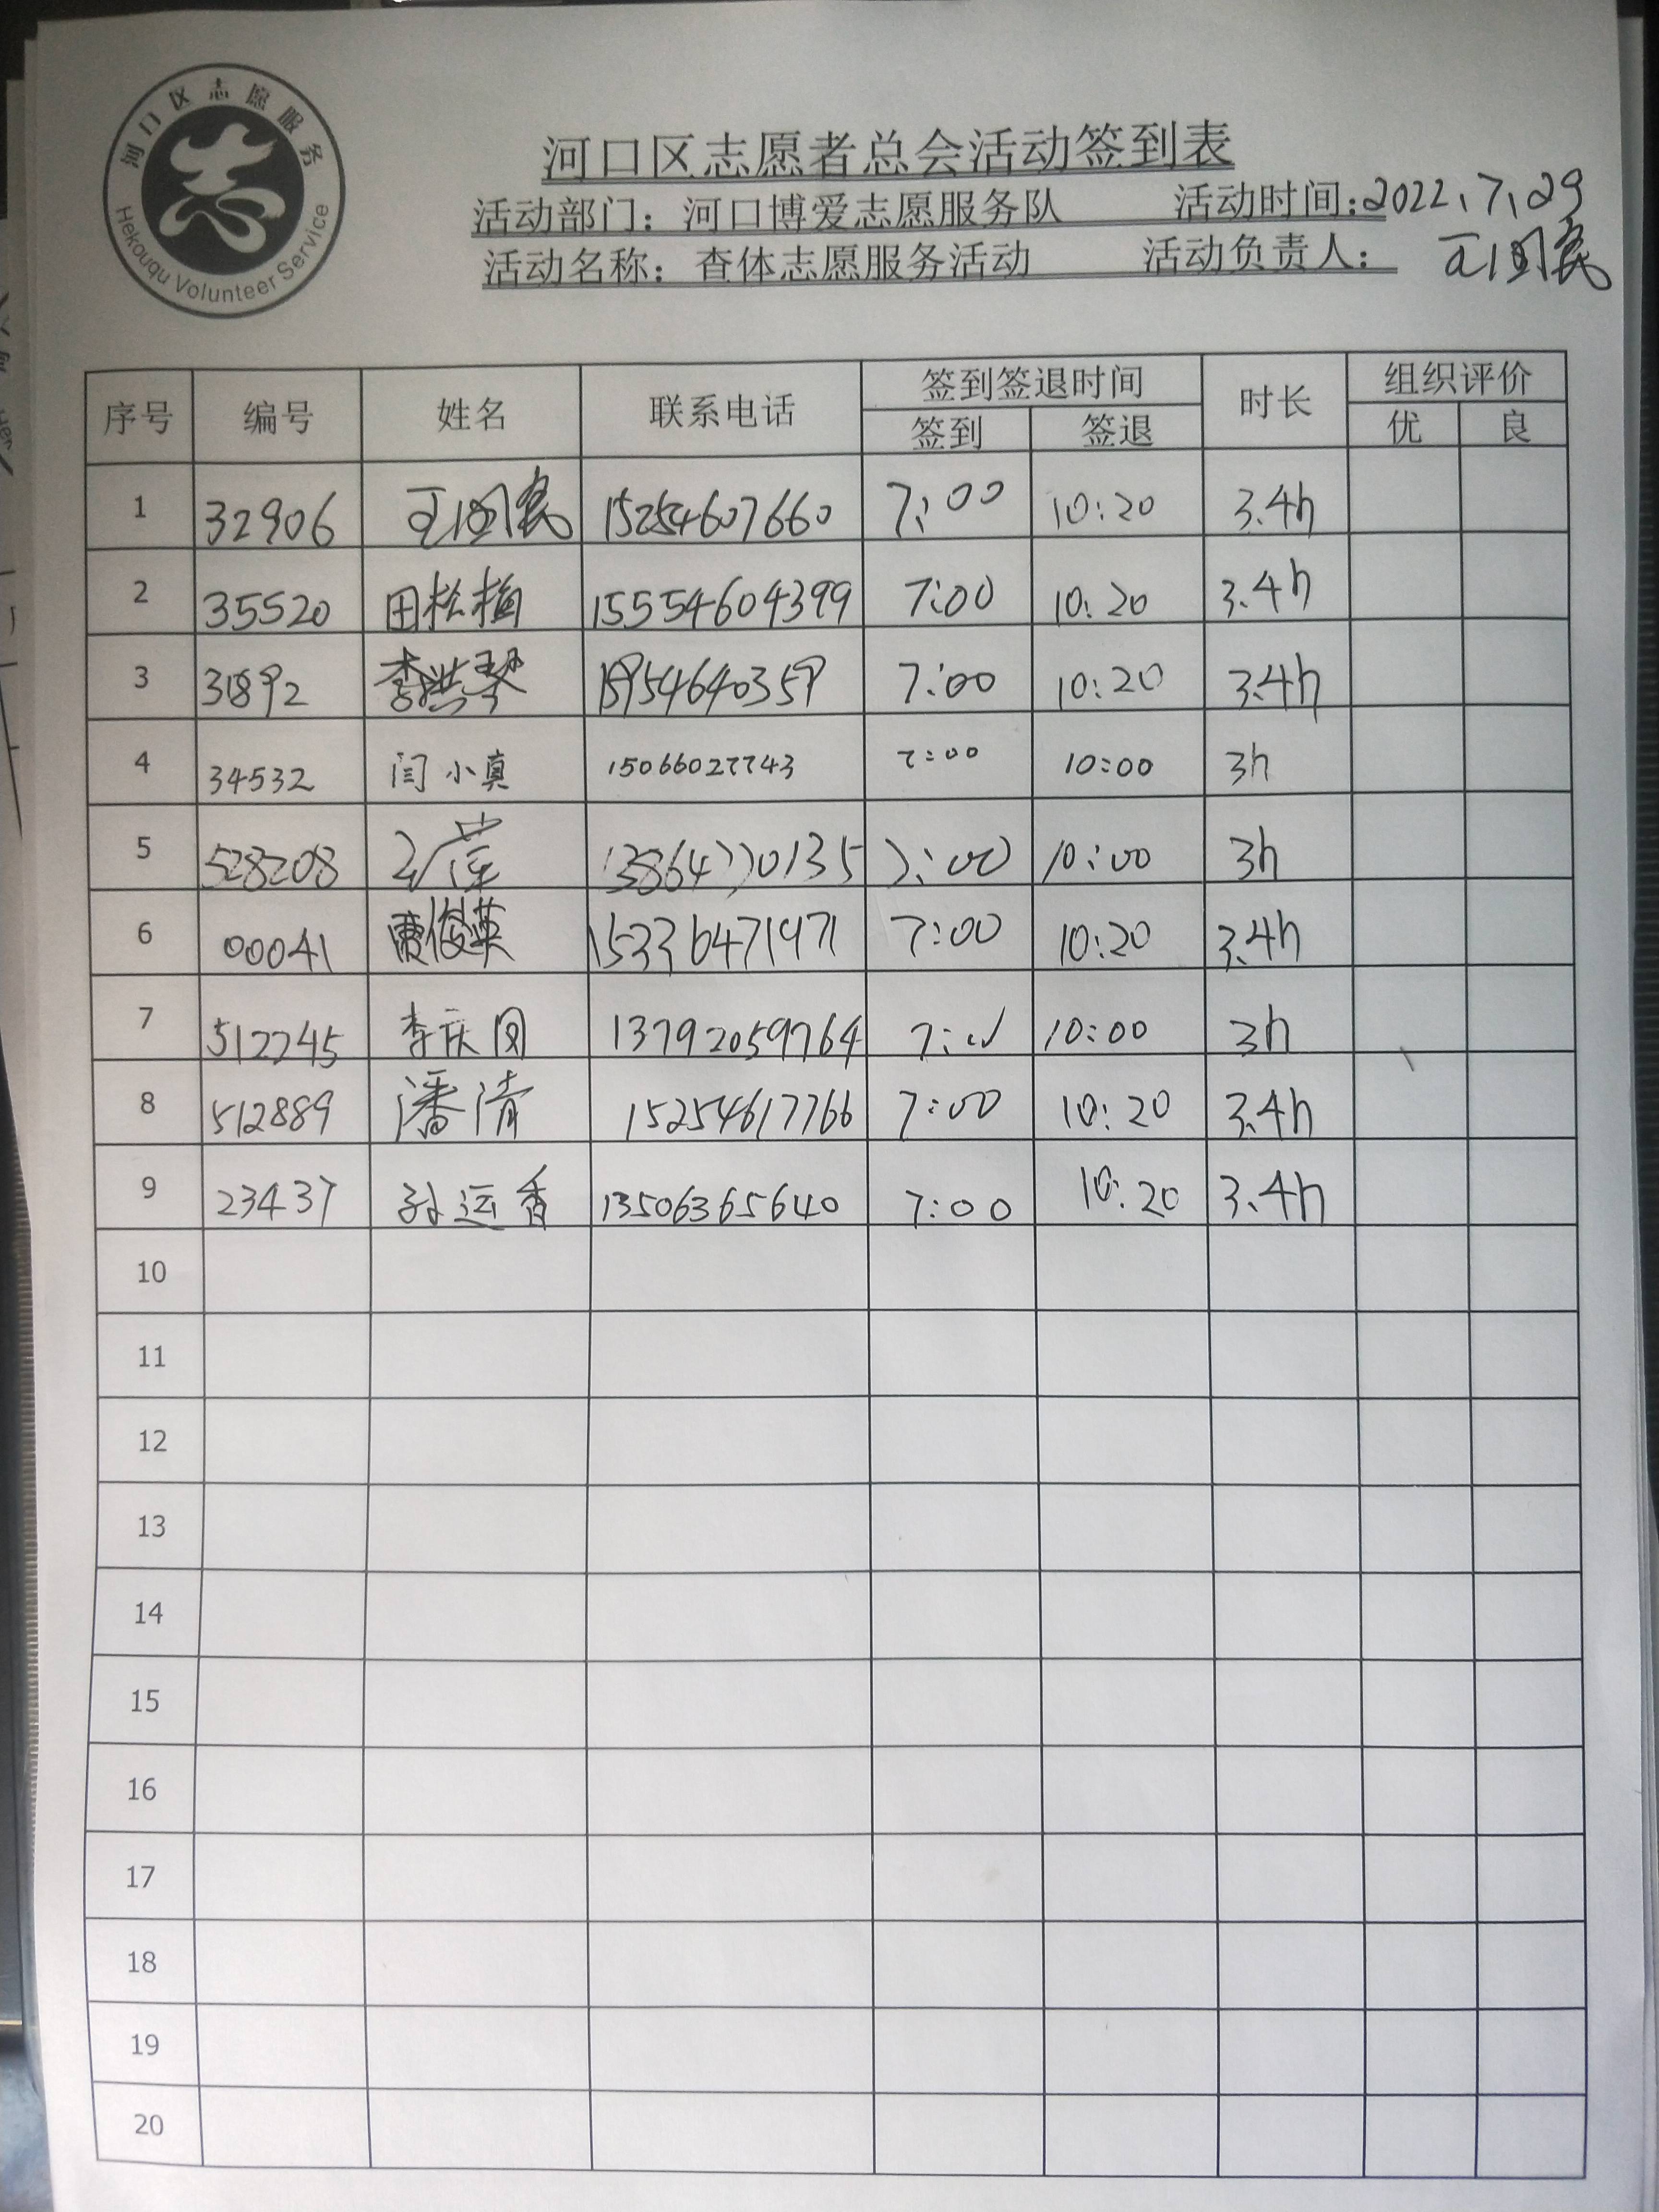 河口区志愿服务
Hekouqu Volunteer Service
河口区志愿者总会活动签到表
活动部门：河口博爱志愿服务队 活动时间：2022、7、29
活动名称：查体志愿服务活动 活动负责人：
序号 编号 姓名 联系电话 签到签退时间 时长 组织评价
签到 签退 优 良
1 32906 15254607660 7:00 10:20 3.4h
2 35520 田松梅 15554604399 7:00 10:20 3.4h
3 31892 李洪琴 15954640359 7:00 10:20 3.4h
4 34532 闫小真 15066027743 7:00 10:00 3h
5 528208 13864770135 7:00 10:00 3h
6 00041 俊英 15336471971 7:00 10:20 3.4h
7 512245 李庆 13792059764 7:00 10:00 3h
8 512889 潘清 15254617766 7:00 10:20 3.4h
9 23437 孙运香 13506365640 7:00 10:20 3.4h
10
11
12
13
14
15
16
17
18
19
20